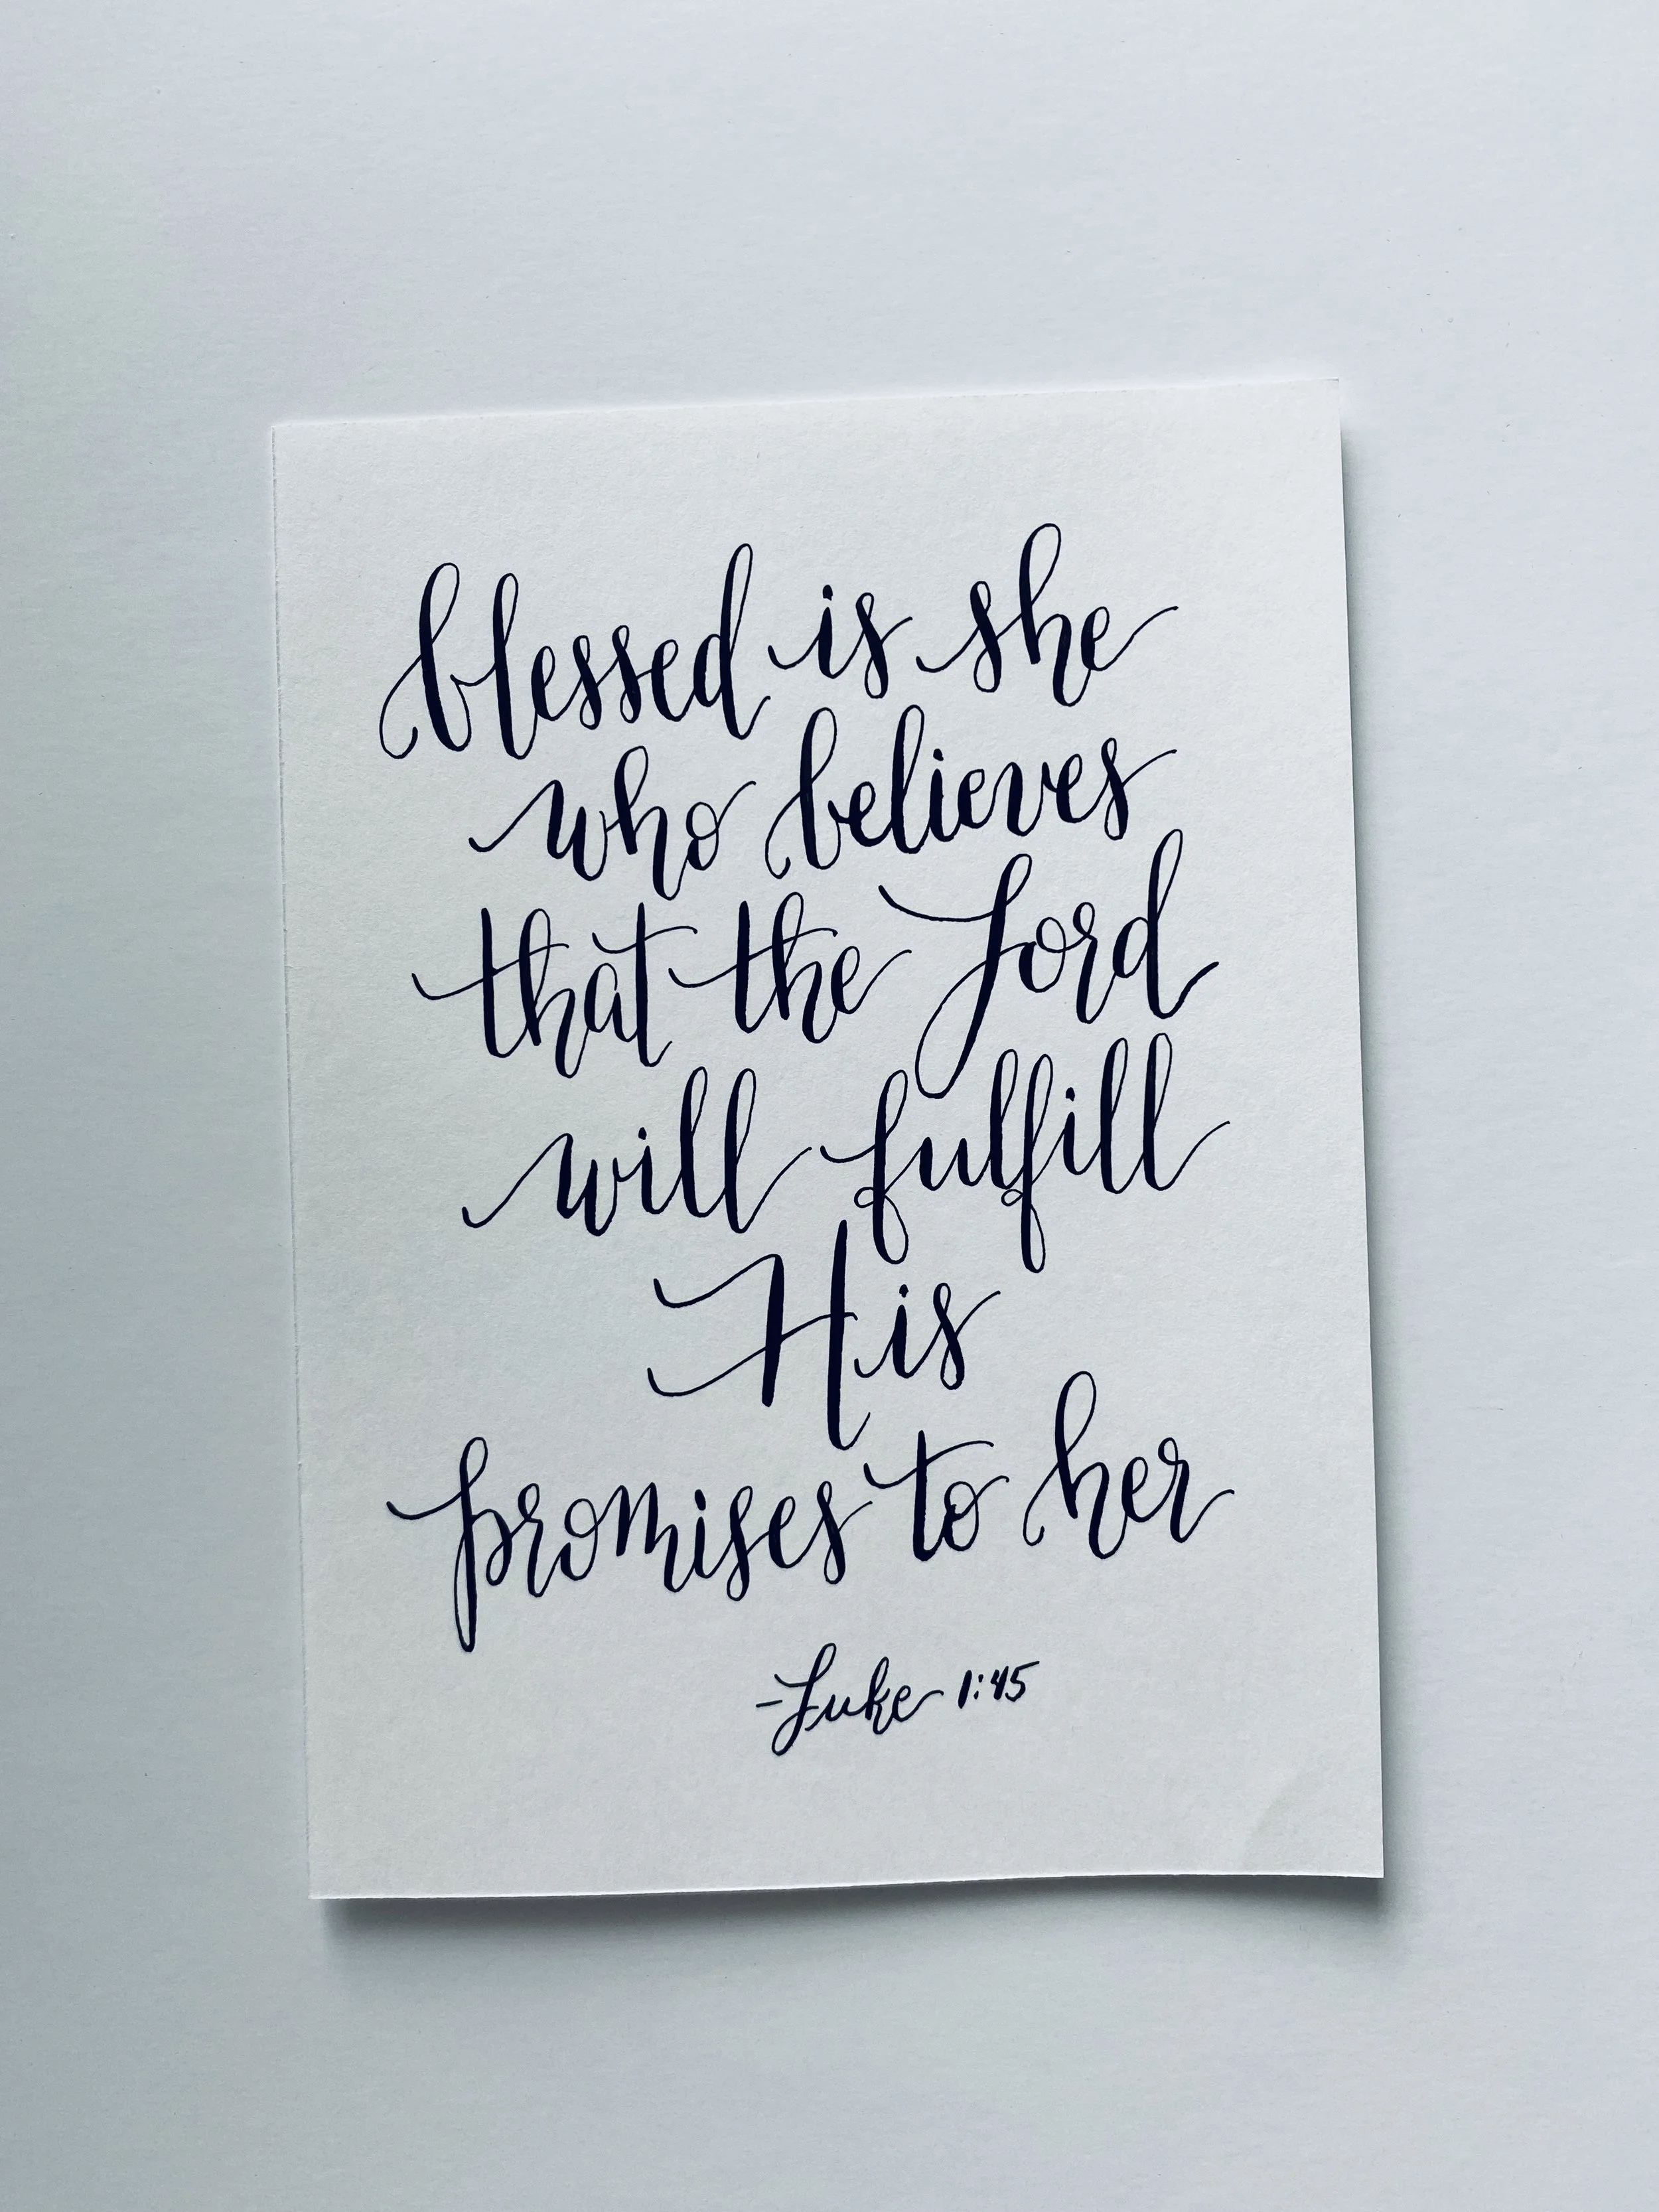 blessed is she
who believes
that the Lord
will fulfill
His
promises to her
-Luke 1:45